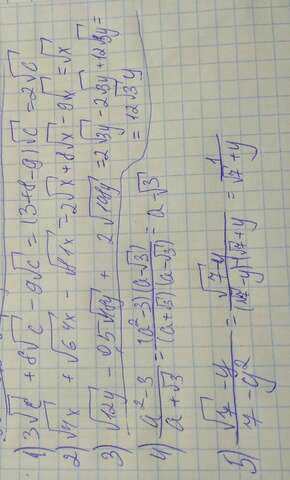 1) 3√c + 8√c - 9√c = (3+8-9)√c = 2√c
2) √4x + √64x - √81x = 2√x + 8√x - 9√x = √x
3) √12y - 0,5√48y + 2√108y = 2√3y - 2√3y + 12√3y =
= 12√3y
4) a²-3 / a+√3 = (a-√3)(a+√3) / (a+√3) = a-√3
5) √7-y / 7-y² = √7-y / (√7-y)(√7+y) = 1 / √7+y